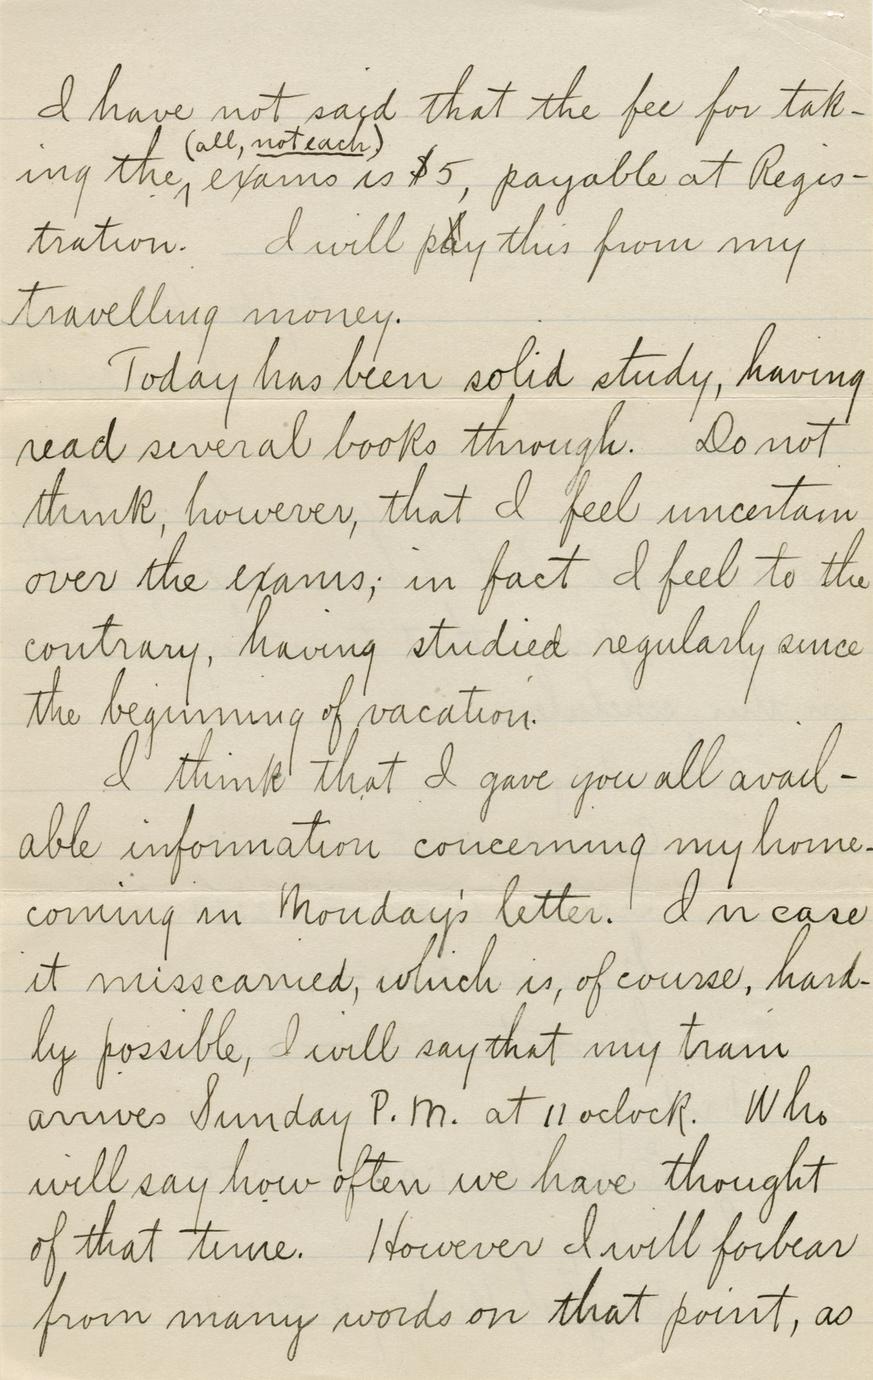 I have not said that the fee for tak-
(all, not each)
ing the, exams is $5, payable at Regis-
tration. I will pay this from my
travelling money.
Today has been solid study, having
read several books through. Do not
think, however, that I feel uncertain
over the exams; in fact I feel to the
contrary, having studied regularly since
the beginning of vacation.
I think that I gave you all avail-
able information concerning my home-
coming in Monday's letter. In case
it misscarried, which is, of course, hard-
ly possible, I will say that my train
arrives Sunday P.M. at 11 oclock. Who
will say how often we have thought
of that time. However I will forbear
from many words on that point, as